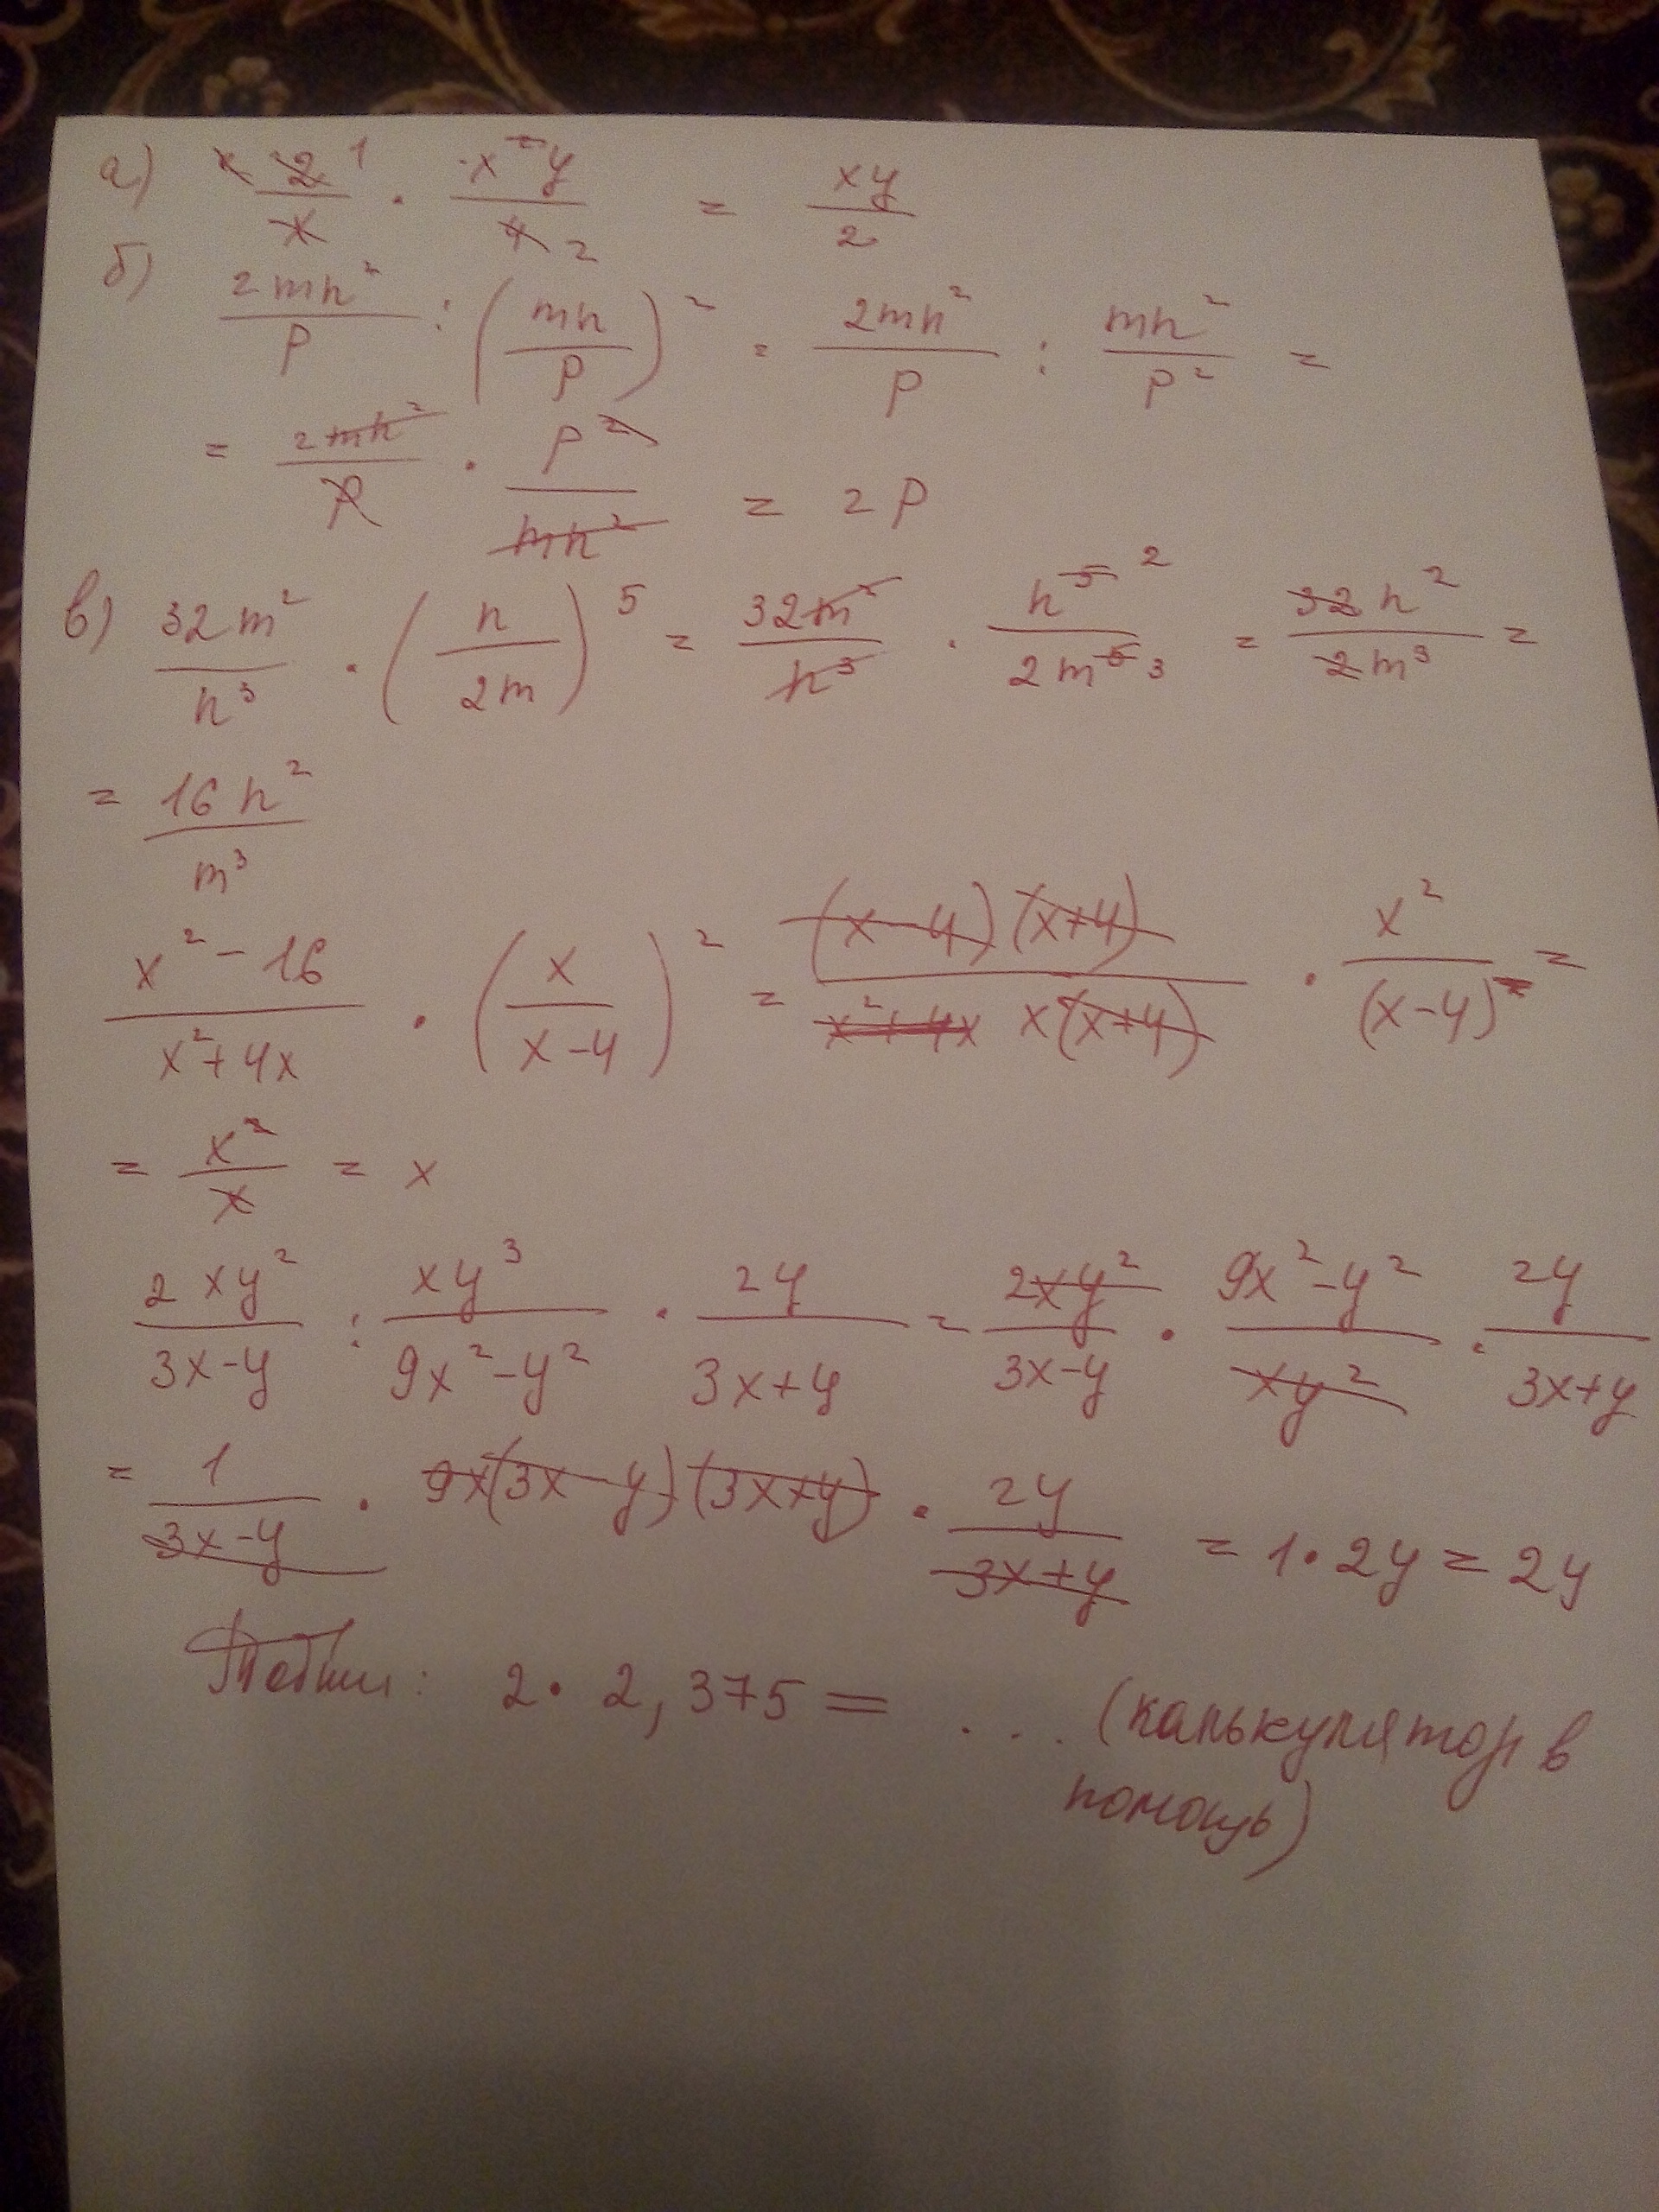 а) 2/x 1 · x²y/4 2 = xy/2
б) 2mn²/p : (mn/p)² = 2mn²/p : mn²/p² =
= 2mn²/p · p²/mn² = 2p
в) 32m²/n³ · (n/2m)⁵ = 32m²/n³ · n⁵ 2/2m⁵ 3 = 32n²/2m³ =
= 16n²/m³
x²-16/x²+4x · (x/x-4)² = (x-4)(x+4)/x²+4x x(x+4) · x²/(x-4)² =
= x²/x = x
2xy²/3x-y : xy³/9x²-y² · 2y/3x+y = 2xy²/3x-y · 9x²-y²/xy² · 2y/3x+y
= 1/3x-y · 9x(3x-y)(3x+y) · 2y/3x+y = 1·2y = 2y
2 · 2,375 = ... (калькулятор в
помощь)